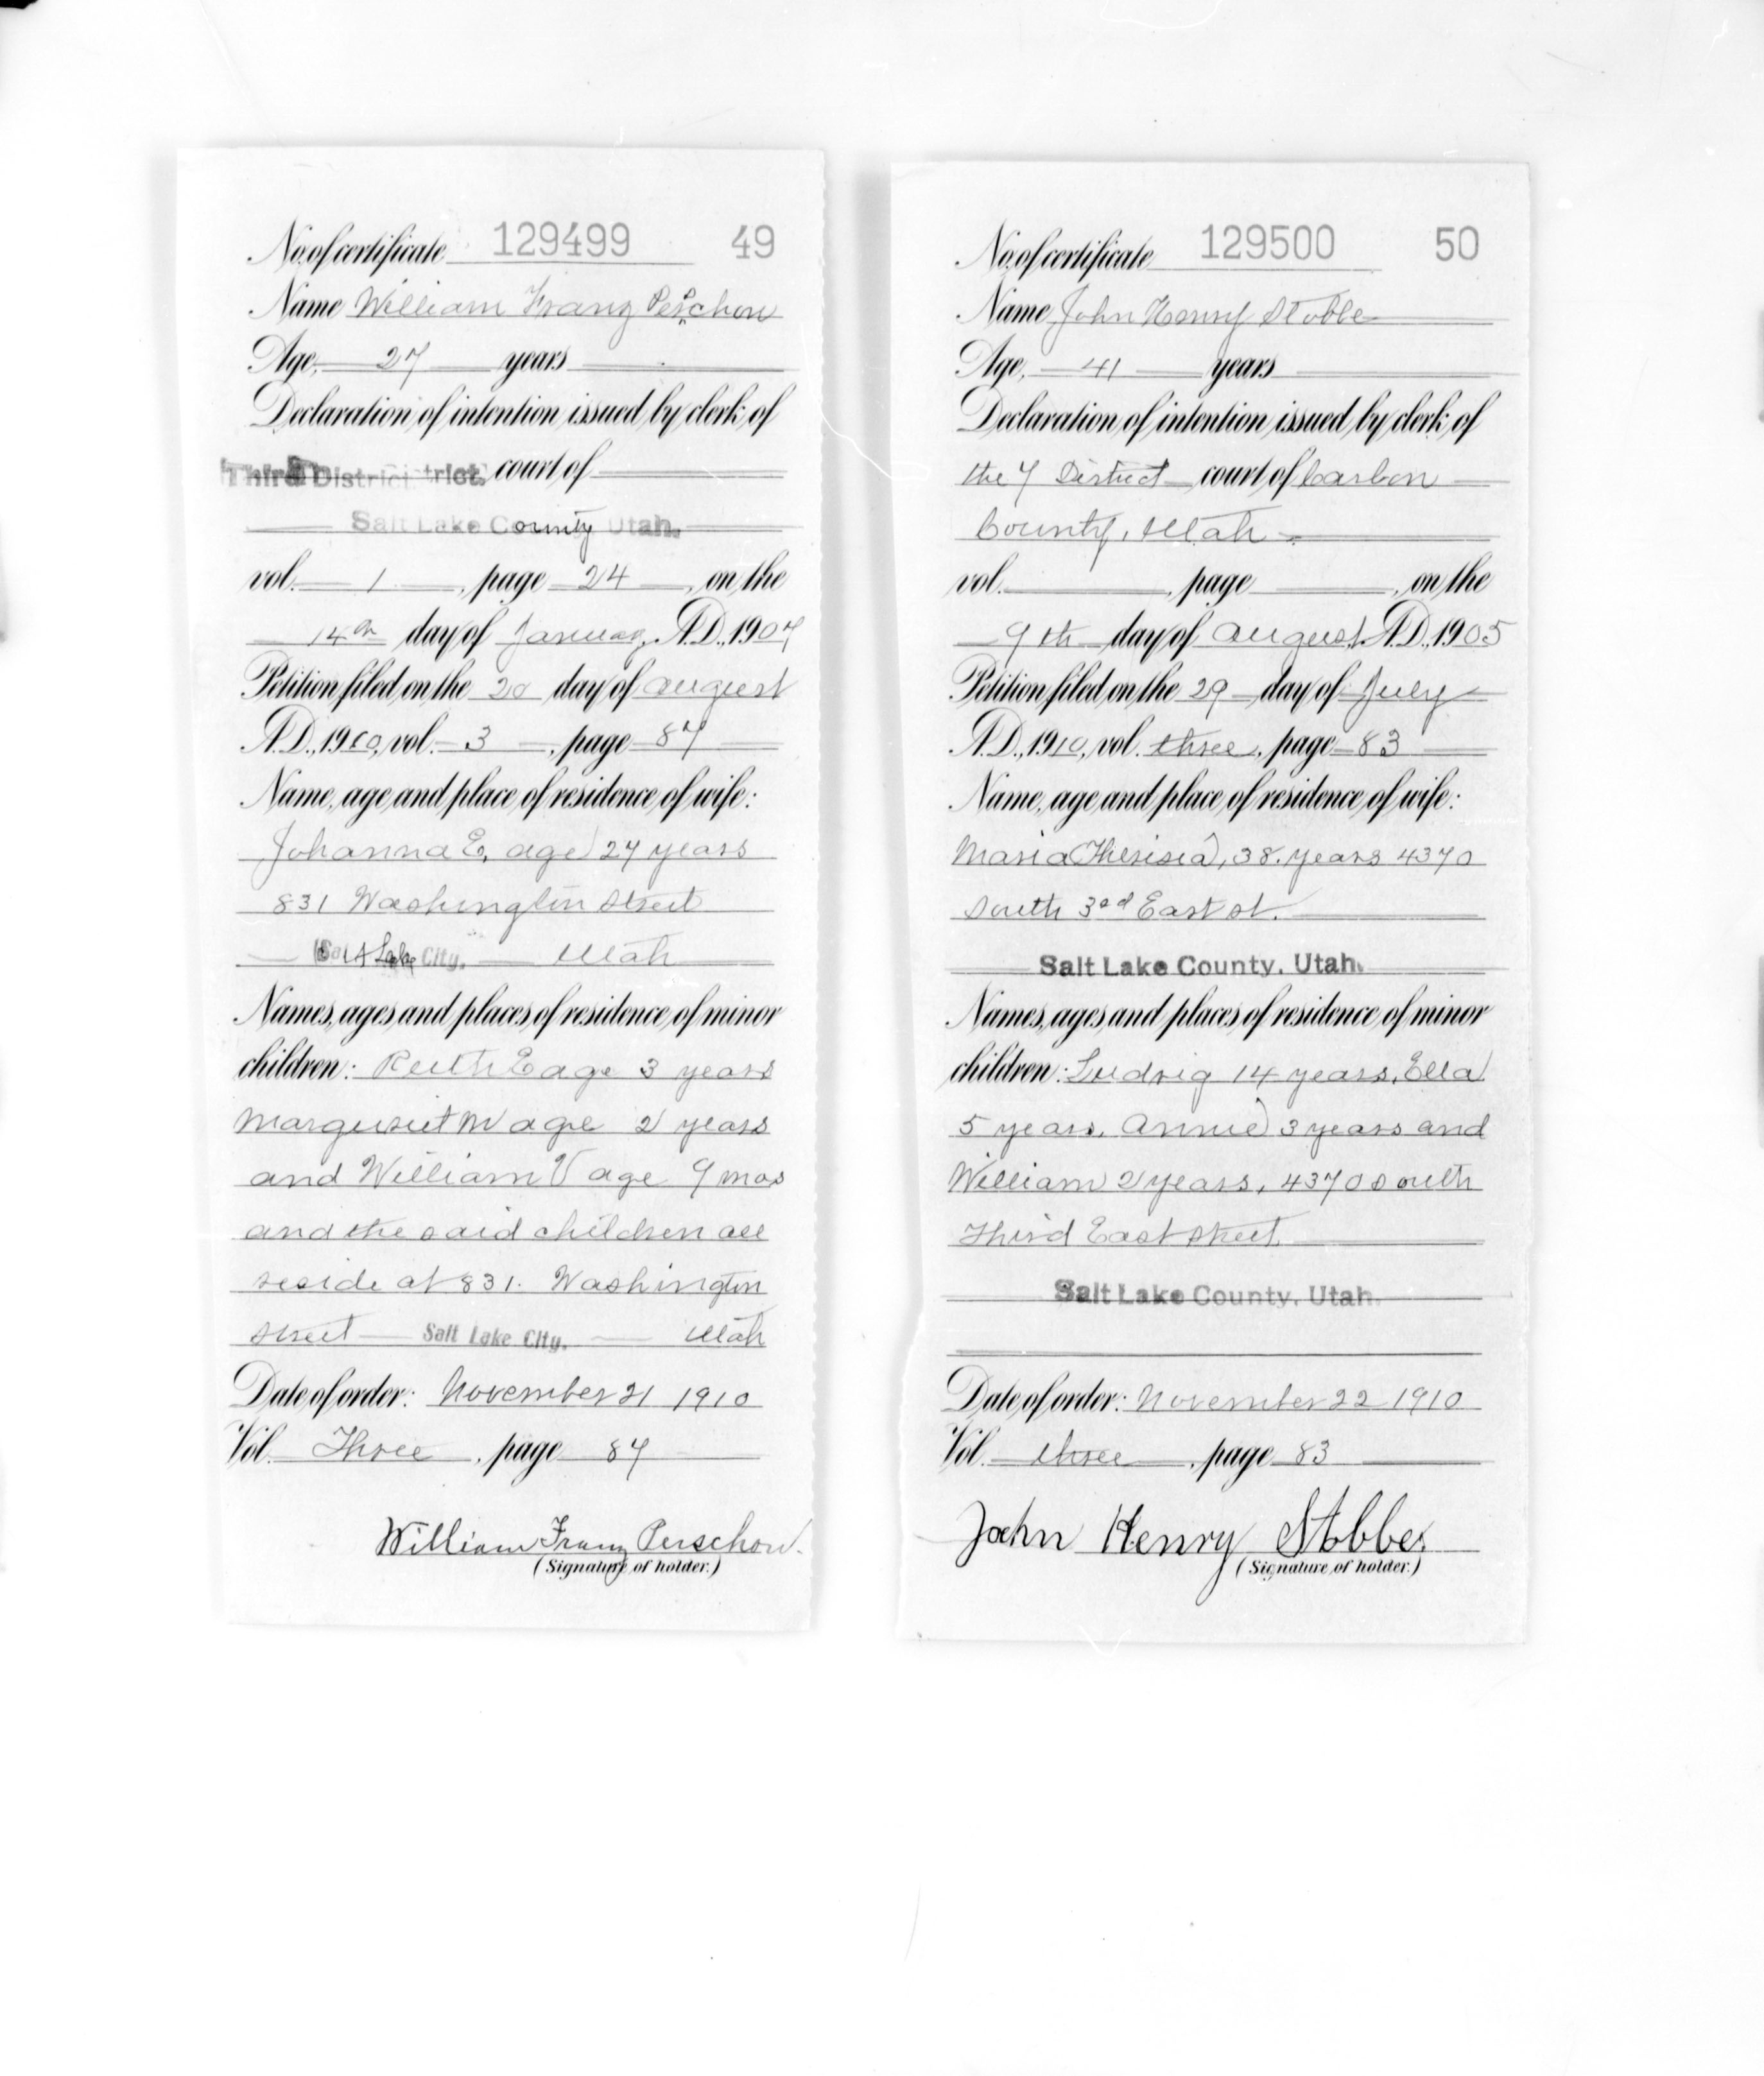 No. of certificate 129499 49
Name William Franz Perschon
Age, 27 years
Declaration of intention issued by clerk of
Third District. court of
Salt Lake County Utah.
vol. 1, page 24, on the
14th day of January, A.D., 1907
Petition filed on the 20 day of August
A.D., 1910, vol. 3, page 87
Name, age and place of residence of wife:
Johanna E, age 27 years
831 Washington Street
Salt Lake City. Utah
Names, ages and places of residence of minor
children: Ruth E age 3 years
Margueriet M age 2 years
and William V age 9 mos
and the said children all
reside at 831. Washington
street Salt Lake City. Utah
Date of order: November 21 1910
Vol. Three, page 87
William Franz Perschon.
(Signature of holder.)
No. of certificate 129500 50
Name John Henry Stobbe
Age, 41 years
Declaration of intention issued by clerk of
the 7 District court of Carbon
County, Utah
vol. , page , on the
9th day of August A.D., 1905
Petition filed on the 29 day of July
A.D., 1910, vol. three, page 83
Name, age and place of residence of wife:
Maria Theresia, 38. years 4370
South 3rd East st.
Salt Lake County, Utah.
Names, ages and places of residence of minor
children: Ludvig 14 years, Ella
5 years, Annie 3 years and
William 2 years, 4370 South
Third East street
Salt Lake County, Utah.
Date of order: November 22 1910
Vol. three, page 83
John Henry Stobbe.
(Signature of holder.)